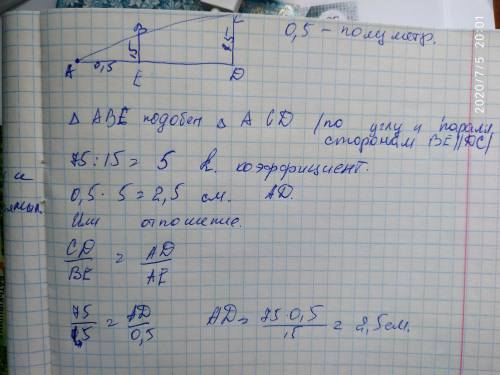 C
B
0,5 - полуметр.
75
15
A 0,5 E D
2020/7/5 20:01
Δ ABE подобен Δ ACD /по углу и паралл.
сторонам BE||DC/
75:15 = 5 k. коэффициент.
0,5 · 5 = 2,5 см. AD.
Или отношение.
CD/BE = AD/AE
75/15 = AD/0,5 AD = 75·0,5/15 = 2,5 см.